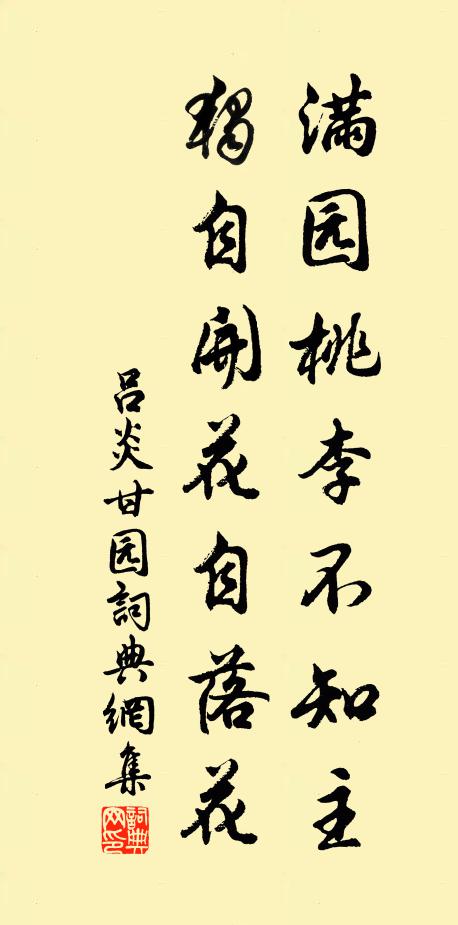 满园桃李不知主
独自开花自落花
吕炎甘园詞典網集
詞典
网印